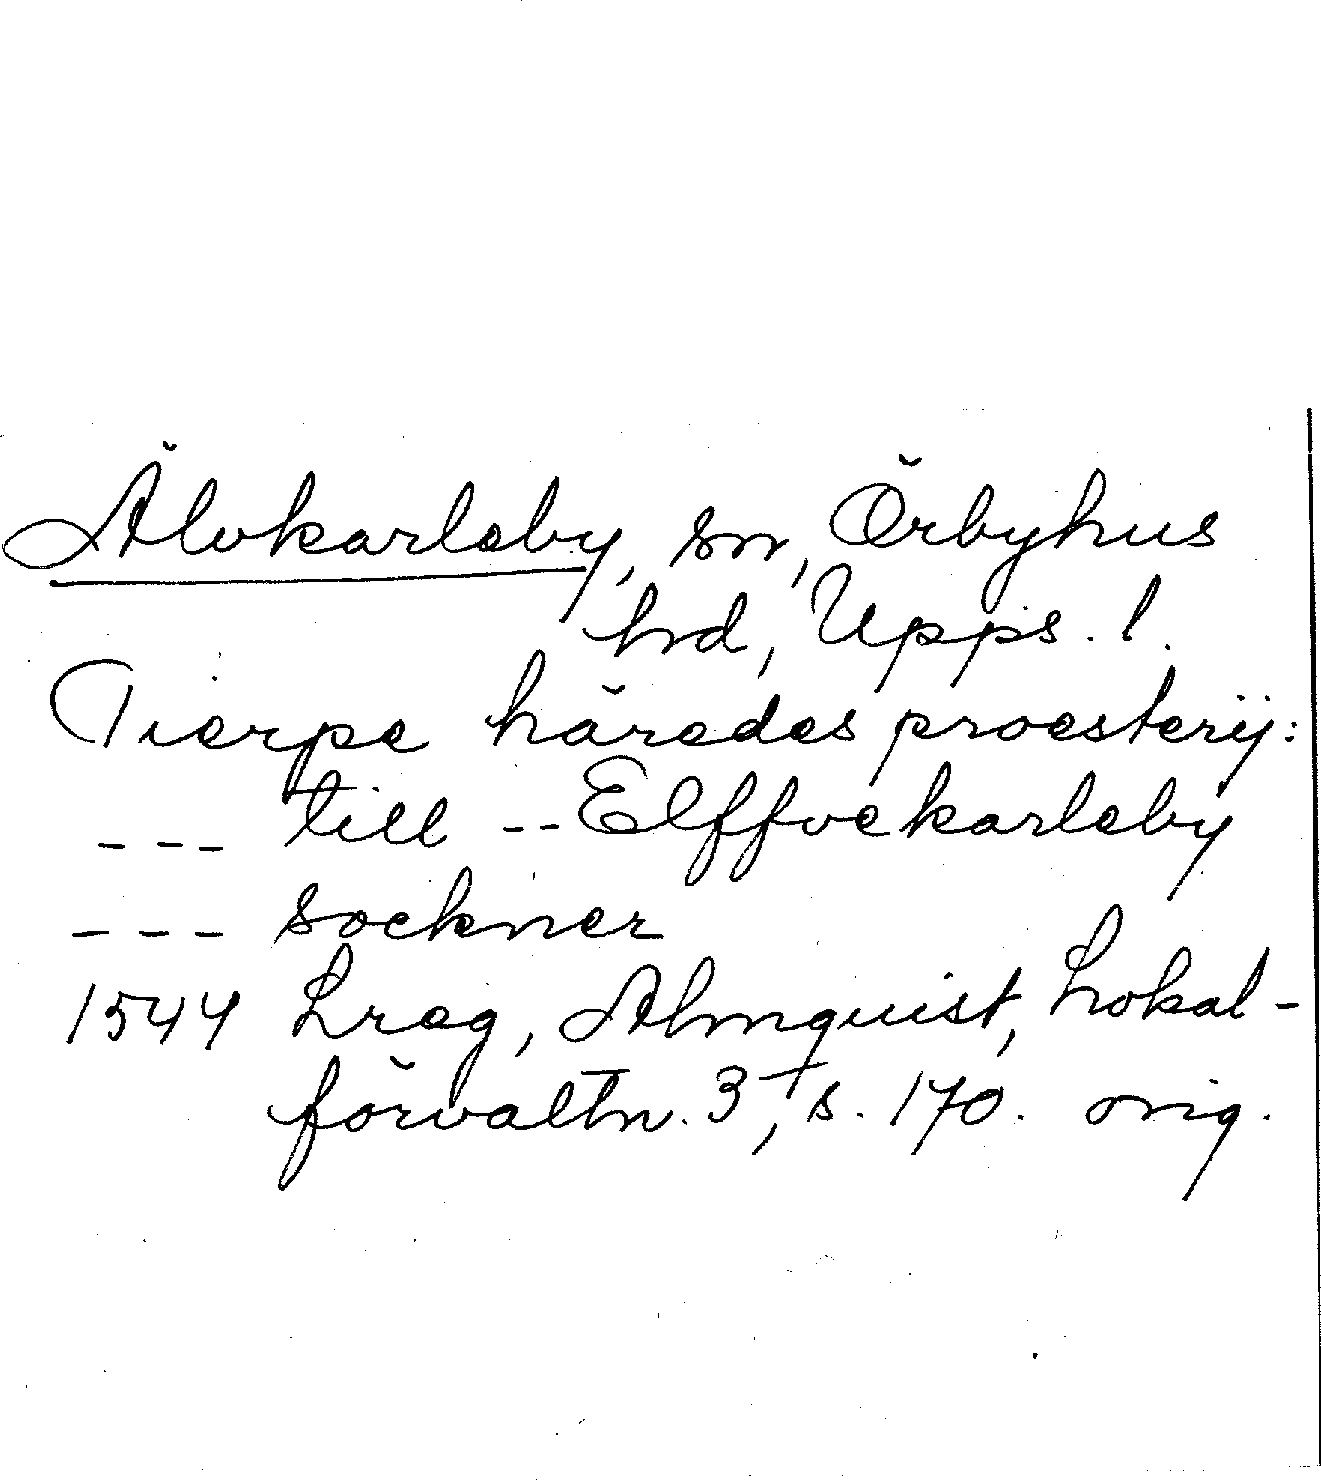 Älvkarleby, sn, Örbyhus
hrd, Upps. l.
Tierpe häredes proesterij:
--- till -- Elffvekarleby
--- sockner
1544 Lreg, Almquist, Lokal-
förvaltn. 3, s. 170. orig.